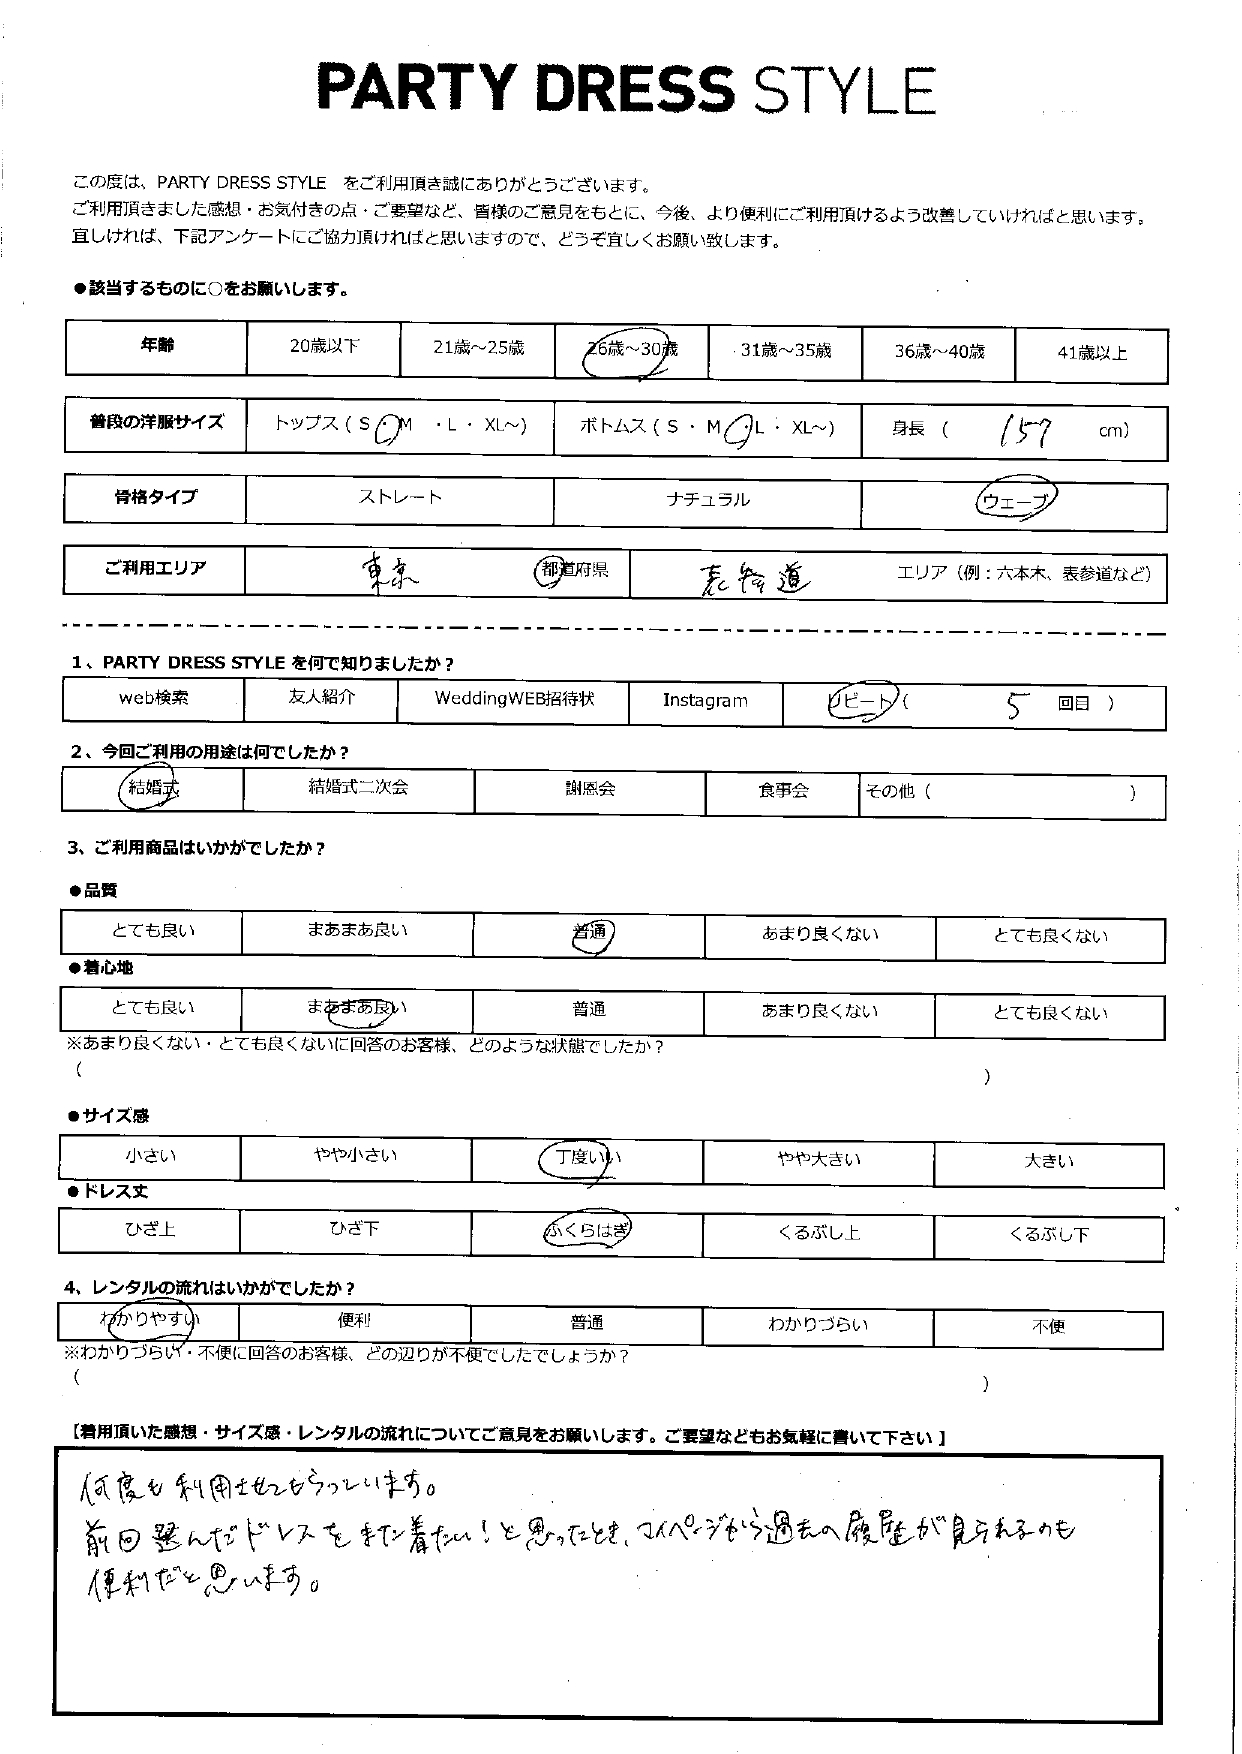 PARTY DRESS STYLE
この度は、PARTY DRESS STYLE をご利用頂き誠にありがとうございます。
ご利用頂きました感想・お気付きの点・ご要望など、皆様のご意見をもとに、今後、より便利にご利用頂けるよう改善していければと思います。
宜しければ、下記アンケートにご協力頂ければと思いますので、どうぞ宜しくお願い致します。
●該当するものに○をお願いします。
年齢 20歳以下 21歳～25歳 26歳～30歳 31歳～35歳 36歳～40歳 41歳以上
普段の洋服サイズ トップス ( S ・ M ・L ・ XL～) ボトムス ( S ・ M ・ L ・ XL～) 身長 ( 157 cm)
骨格タイプ ストレート ナチュラル ウェーブ
ご利用エリア 東京 都道府県 表参道 エリア（例：六本木、表参道など）
1、PARTY DRESS STYLE を何で知りましたか？
web検索 友人紹介 WeddingWEB招待状 Instagram リピート ( 5 回目 )
2、今回ご利用の用途は何でしたか？
結婚式 結婚式二次会 謝恩会 食事会 その他 ( )
3、ご利用商品はいかがでしたか？
●品質
とても良い まあまあ良い 普通 あまり良くない とても良くない
●着心地
とても良い まあまあ良い 普通 あまり良くない とても良くない
※あまり良くない・とても良くないに回答のお客様、どのような状態でしたか？
( )
●サイズ感
小さい やや小さい 丁度いい やや大きい 大きい
●ドレス丈
ひざ上 ひざ下 ふくらはぎ くるぶし上 くるぶし下
4、レンタルの流れはいかがでしたか？
わかりやすい 便利 普通 わかりづらい 不便
※わかりづらい・不便に回答のお客様、どの辺りが不便でしたでしょうか？
( )
【着用頂いた感想・サイズ感・レンタルの流れについてご意見をお願いします。ご要望などもお気軽に書いて下さい 】
何度も利用させてもらっています。
前回選んだドレスをまた着たい！と思ったとき、マイページから過去の履歴が見られるのも
便利だと思います。